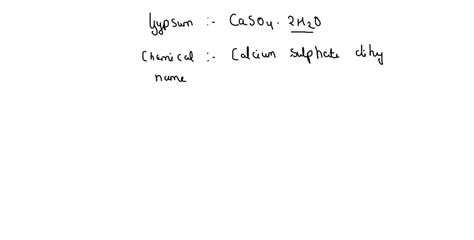 Gypsum :- CaSO4. 2H2O
Chemical :- Calcium sulphate dihy
name